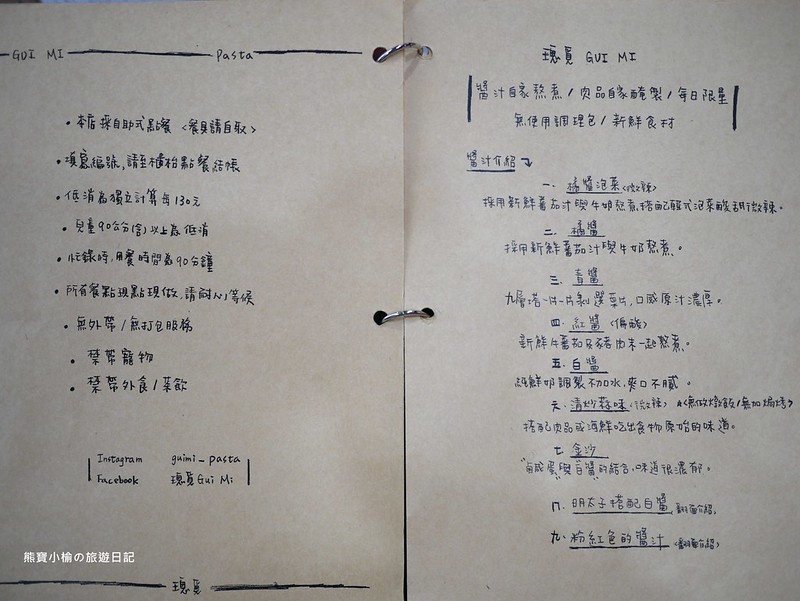 GUI MI Pasta
• 本店採自助式點餐 <餐具請自取>
• 填寫編號,請至櫃枱點餐結帳
• 低消為獨立計算每130元
• 兒童90公分(含)以上為低消
• 忙錄時,用餐時間為90分鐘
• 所有餐點現點現做,請耐心等候
• 無外帶/無打包服務
• 禁帶寵物
• 禁帶外食/茶飲
Instagram guimi_pasta
Facebook 瑰覓Gui Mi
瑰覓
瑰覓 GUI MI
醬汁自家熬煮/肉品自家醃製/每日限量
無使用調理包/新鮮食材
醬汁介紹
一、橘醬泡菜<微辣>
採用新鮮蕃茄汁與牛奶熬煮,搭自己韓式泡菜酸甜微辣。
二、橘醬
採用新鮮蕃茄汁與牛奶熬煮。
三、青醬
九層塔一片一片剝選葉片,口感原汁濃厚。
四、紅醬<偏酸>
新鮮牛蕃茄及豬肉末一起熬煮。
五、白醬
純鮮奶調製不加水,爽口不膩。
六、清炒蒜味<微辣> *<無做燉飯/無加焗烤>
搭配肉品或海鮮吃出食物原始的味道。
七、金沙
鹹蛋與白醬的結合,味道很濃郁。
八、明太子搭配白醬<翻面介紹>
九、粉紅色的醬汁<翻面介紹>
熊寶小榆の旅遊日記